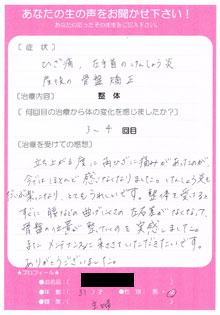 あなたの生の声をお聞かせ下さい！
あなたの思ったそのままをご記入下さい。
【症状】
ひざ痛、左手首のけんしょう炎
産後の骨盤矯正
【治療内容】 整体
【何回目の治療から体の変化を感じましたか？】
3～4 回目
【治療を受けての感想】
立ち上がる度に両ひざに痛みがあったのが、
今はほとんど感じなくなりました。けんしょう炎も
だいぶ楽になり、とてもうれしいです。整体を受けると
すぐに腰などの曲げにくさの左右差がなくなって、
骨盤の位置が整っていくのを実感しました。
またメンテナンスに来させていただきたいです。
ありがとうございました。
★プロフィール★
●お名前：
●年齢：（31）才 ●性別：男・女
●職業：主婦